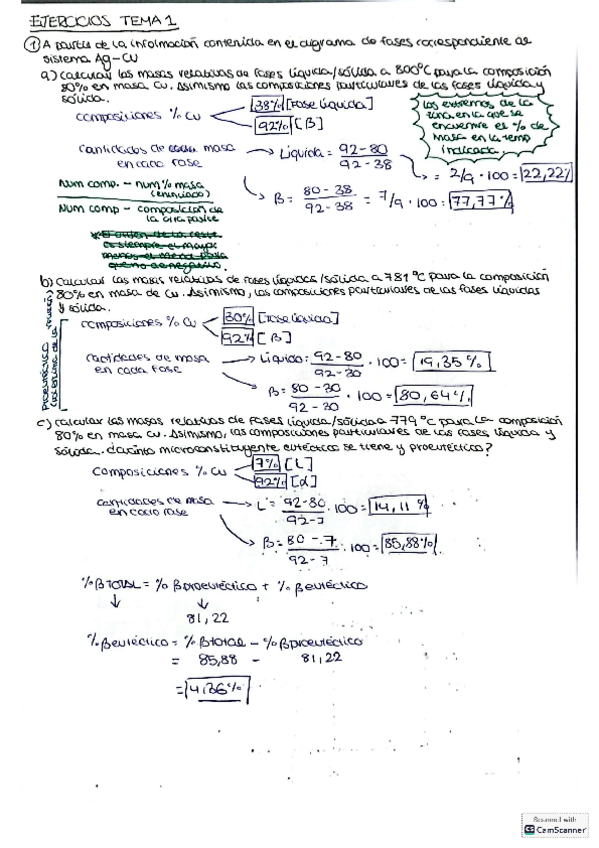 EJERCICIOS TEMA 1
① A partir de la información contenida en el diagrama de fases correspondiente al
sistema Ag-Cu
a) calcular las masas relativas de fases líquida/sólida a 800°C para la composición
80% en masa Cu. Asimismo las composiciones particulares de las fases líquida y
sólida.
composiciones % Cu
38% [Fase líquida]
92% [β]
los extremos de la
zona en la que se
encuentre el % de
masa en la temp
indicada.
cantidades de masa
en cada fase
→ Líquida = 92-80 / 92-38
→ = 2/9 · 100 = 22,22%
→ β = 80-38 / 92-38 = 7/9 · 100 = 77,77%
Num comp. - num % masa
(enunciado)
Num comp - composición de
la otra fase
b) calcular las masas relativas de fases líquidas/sólida a 781°C para la composición
80% en masa de Cu. Asimismo, las composiciones particulares de las fases líquidas
y sólida.
PROEUTÉCTICO
composiciones % Cu
30% [Fase líquida]
92% [β]
cantidades de masa
en cada fase
→ Líquido = 92-80 / 92-30 · 100 = 19,35%
→ β = 80-30 / 92-30 · 100 = 80,64%
c) calcular las masas relativas de fases líquida/sólida a 779°C para la composición
80% en masa Cu. Asimismo, las composiciones particulares de las fases líquida y
sólida. ¿cuánto microconstituyente eutéctico se tiene y proeutéctico?
composiciones % Cu
7% [L]
92% [α]
cantidades de masa
en cada fase
→ L = 92-80 / 92-7 · 100 = 14,11%
→ β = 80-7 / 92-7 · 100 = 85,88%
% β TOTAL = % β proeutéctico + % β eutéctico
↓ ↓
81,22
% β eutéctico = % β total - % β proeutéctico
= 85,88 - 81,22
= 4,36%
Scanned with
CS CamScanner